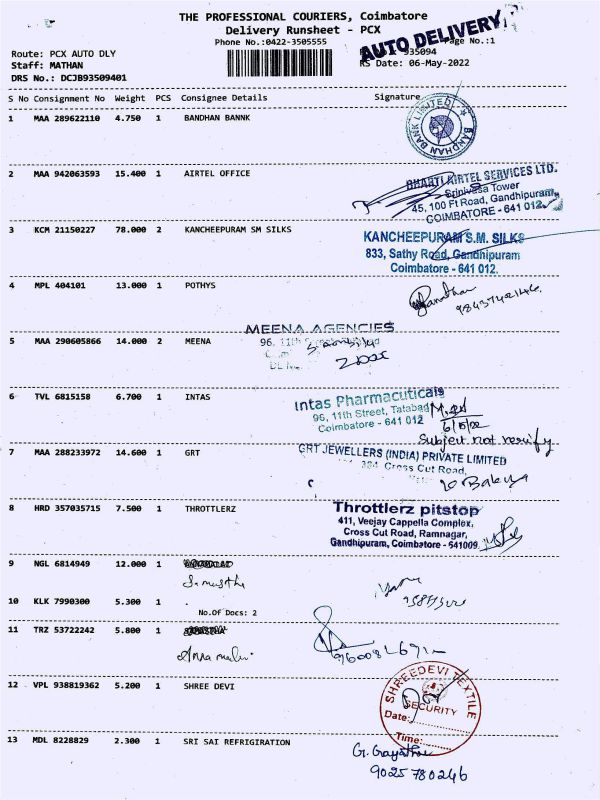 THE PROFESSIONAL COURIERS, Coimbatore
Delivery Runsheet - PCX
Phone No.:0422-3505555 Page No.:1
AUTO DELIVERY
Route: PCX AUTO DLY 935094
Staff: MATHAN RS Date: 06-May-2022
DRS No.: DCJB93509401
S No Consignment No Weight PCS Consignee Details Signature
1 MAA 289622110 4.750 1 BANDHAN BANNK
BANDHAN BANK LIMITED
2 MAA 942063593 15.400 1 AIRTEL OFFICE
BHARTI AIRTEL SERVICES LTD.
Srinivasa Tower
45, 100 Ft Road, Gandhipuram,
COIMBATORE - 641 012.
3 KCM 21150227 78.000 2 KANCHEEPURAM SM SILKS
KANCHEEPURAM S.M. SILKS
833, Sathy Road, Gandhipuram
Coimbatore - 641 012.
4 MPL 404101 13.000 1 POTHYS
5 MAA 290605866 14.000 2 MEENA
MEENA AGENCIES
96, 11th
6 TVL 6815158 6.700 1 INTAS
Intas Pharmacuticals
96, 11th Street, Tatabad
Coimbatore - 641 012
6/5/22
Subject not verify
7 MAA 288233972 14.600 1 GRT
GRT JEWELLERS (INDIA) PRIVATE LIMITED
384 Cross Cut Road,
8 HRD 357035715 7.500 1 THROTTLERZ
Throttlerz pitstop
411, Veejay Cappella Complex,
Cross Cut Road, Ramnagar,
Gandhipuram, Coimbatore - 641009
9 NGL 6814949 12.000 1
10 KLK 7990300 5.300 1 .
No.Of Docs: 2
11 TRZ 53722242 5.800 1
12 VPL 938819362 5.200 1 SHREE DEVI
SHREEDEVI TEXTILE
SECURITY
Date:
Time:
13 MDL 8228829 2.300 1 SRI SAI REFRIGIRATION
G. Gayathri
9025780246